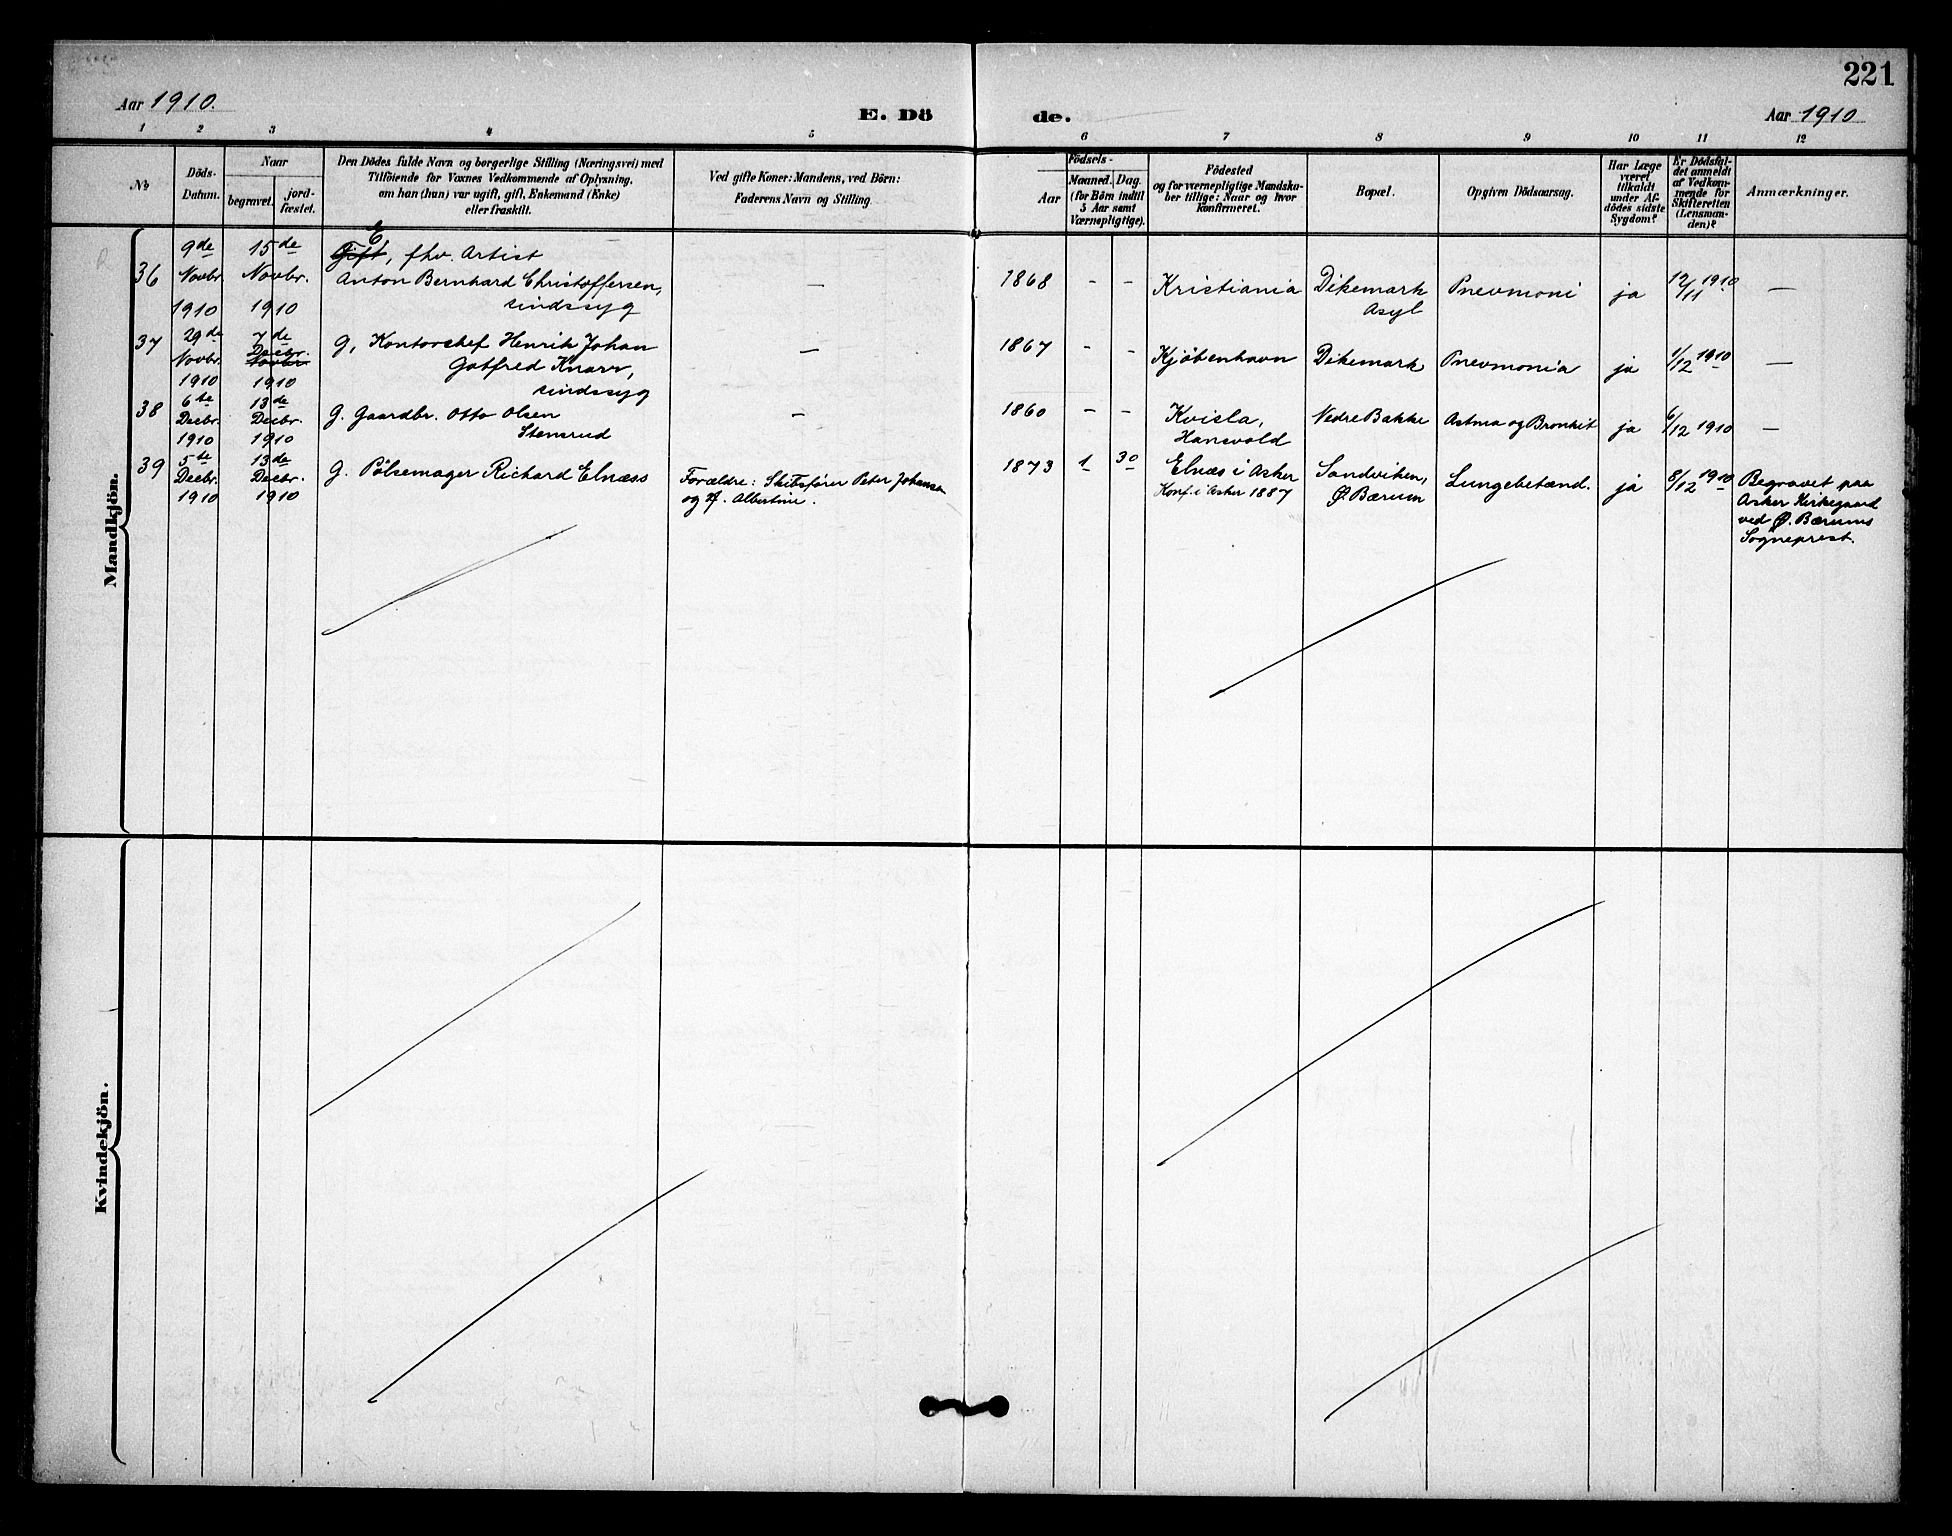 221
Aar 1910.
E. Dö
de.
Aar 1910
1 2 3 4 5 6 7 8 9 10 11 12
No
Döds-
Datum.
Naar
begravet.
jord-
fæstet.
Den Dödes fulde Navn og borgerlige Stilling (Næringsvei) med
Tilföiende for Voxnes Vedkommende af Oplysning,
om han (hun) var ugift, gift, Enkemand (Enke)
eller fraskilt.
Ved gifte Koner: Mandens, ved Börn:
Faderens Navn og Stilling.
Födsels-
Aar
Maaned. Dag.
(for Börn indtil
5 Aar samt
Værnepligtige).
Födested
og for værnepligtige Mandska-
ber tillige: Naar og hvor
konfirmeret.
Bopæl.
Opgiven Dödsaarsag.
Har Læge
været
tilkaldt
under Af-
dödes sidste
Sygdom?
Er Dödsfal-
det anmeldt
af Vedkom-
mende for
Skifteretten
(Lensman-
den)?
Anmærkninger.
Mandkjön.
36
9de
Novbr.
1910
15de
Novbr.
1910
E
Gift, fhv. Artist
Anton Bernhard Christoffersen,
sindssyg
—
1868 - -
Kristiania
Dikemark
Asyl
Pnevmoni
ja
12/11 1910
—
37
29de
Novbr.
1910
7de
Decbr.
Novbr.
1910
G, Kontorchef Henrik Johan
Gotfred Knarr,
sindssyg
—
1867 - -
Kjöbenhavn
Dikemark
Pnevmonia
ja
1/12 1910
—
38
6te
Decbr.
1910
13de
Decbr.
1910
G. Gaardbr. Otto Olsen
Stensrud
—
1860 - -
Kvisla,
Nedre Bakke
Astma og Bronkit
ja
6/12 1910
—
39
5te
Decbr.
1910
13de
Decbr.
1910
G. Pölsemager Richard Elnæss
Forældre: Skibsförer Peter Johansen
og H. Albertine.
1873 1 30
Elnæs i Asker
Konf. i Asker 1887
Sandviken,
Ø. Bærum
Lungebetænd.
ja
8/12 1910
Begravet paa
Asker Kirkegaard
ved Ø. Bærums
Sogneprest.
Kvindekjön.